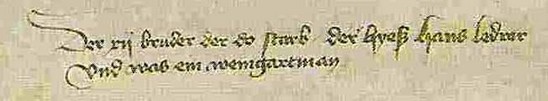 Der xij bruder der do starb der hyeß hans ledrer
Vnd was ein weingartman